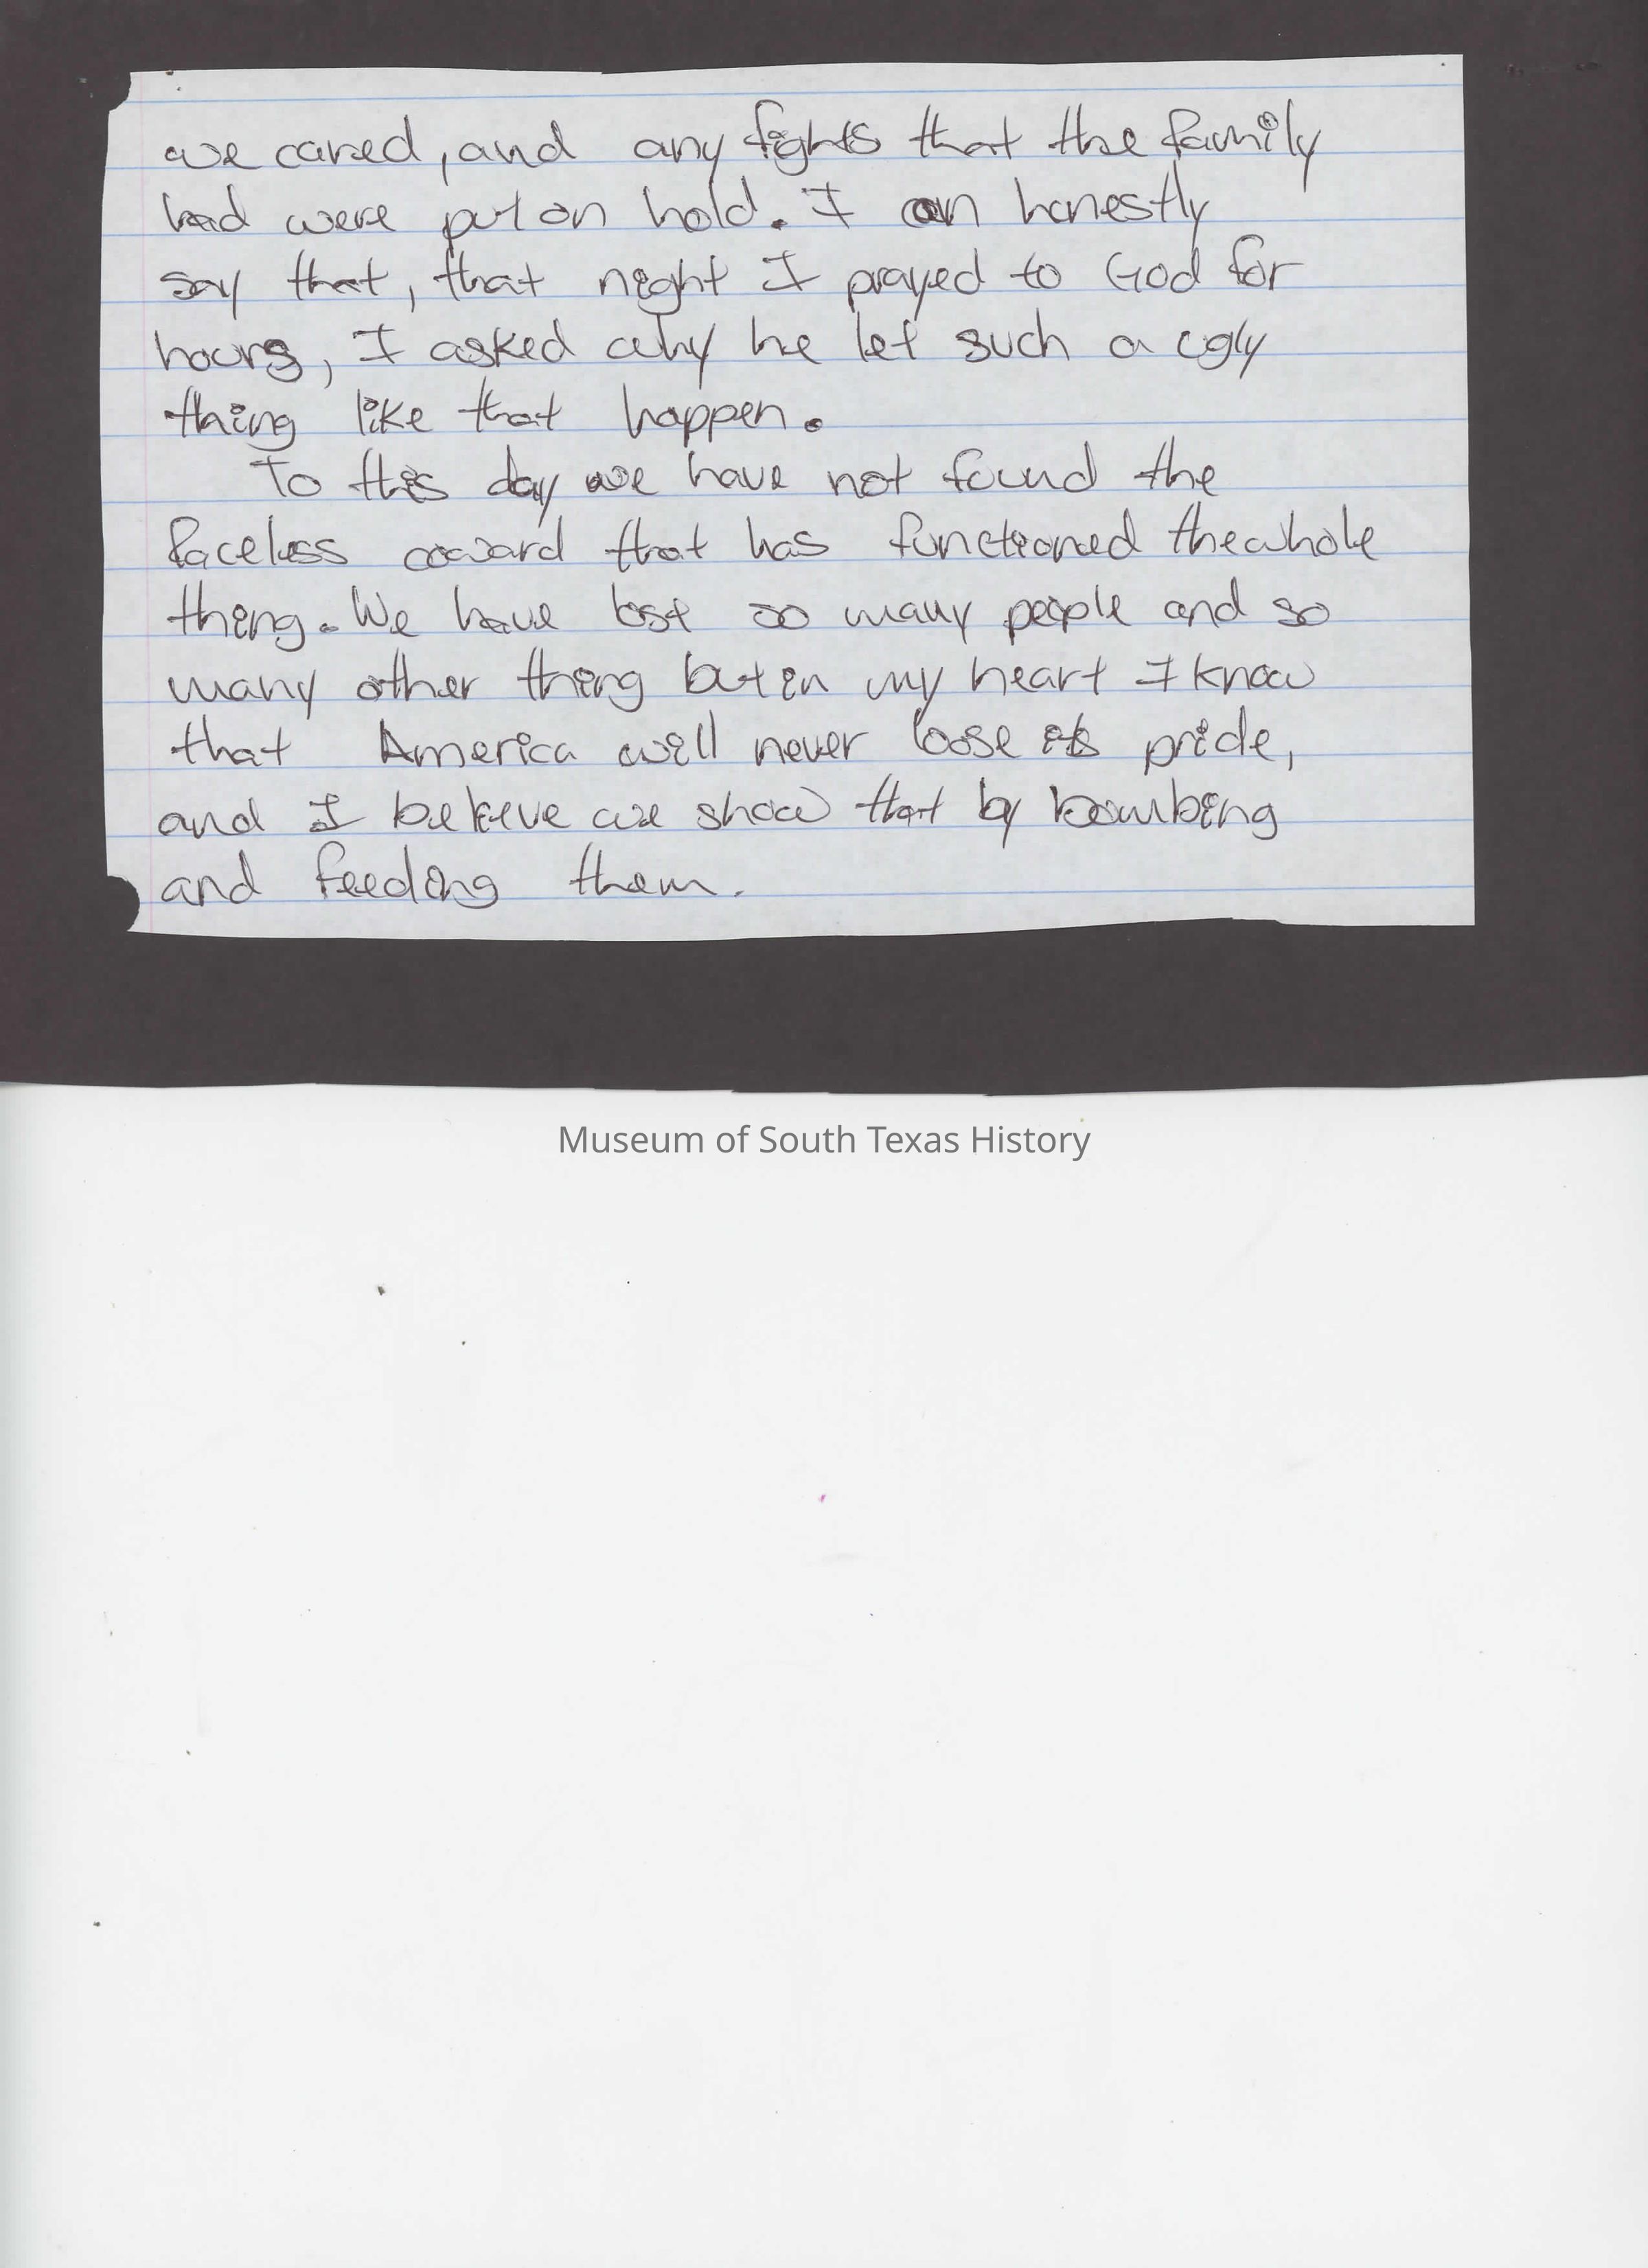 we cared, and any fights that the family
had were put on hold. I can honestly
say that, that night I prayed to God for
hours, I asked why he let such a ugly
thing like that happen.
To this day we have not found the
faceless coward that has functioned the whole
thing. We have lost so many people and so
many other thing but in my heart I know
that America will never loose its pride,
and I believe we show that by bombing
and feeding them.
Museum of South Texas History